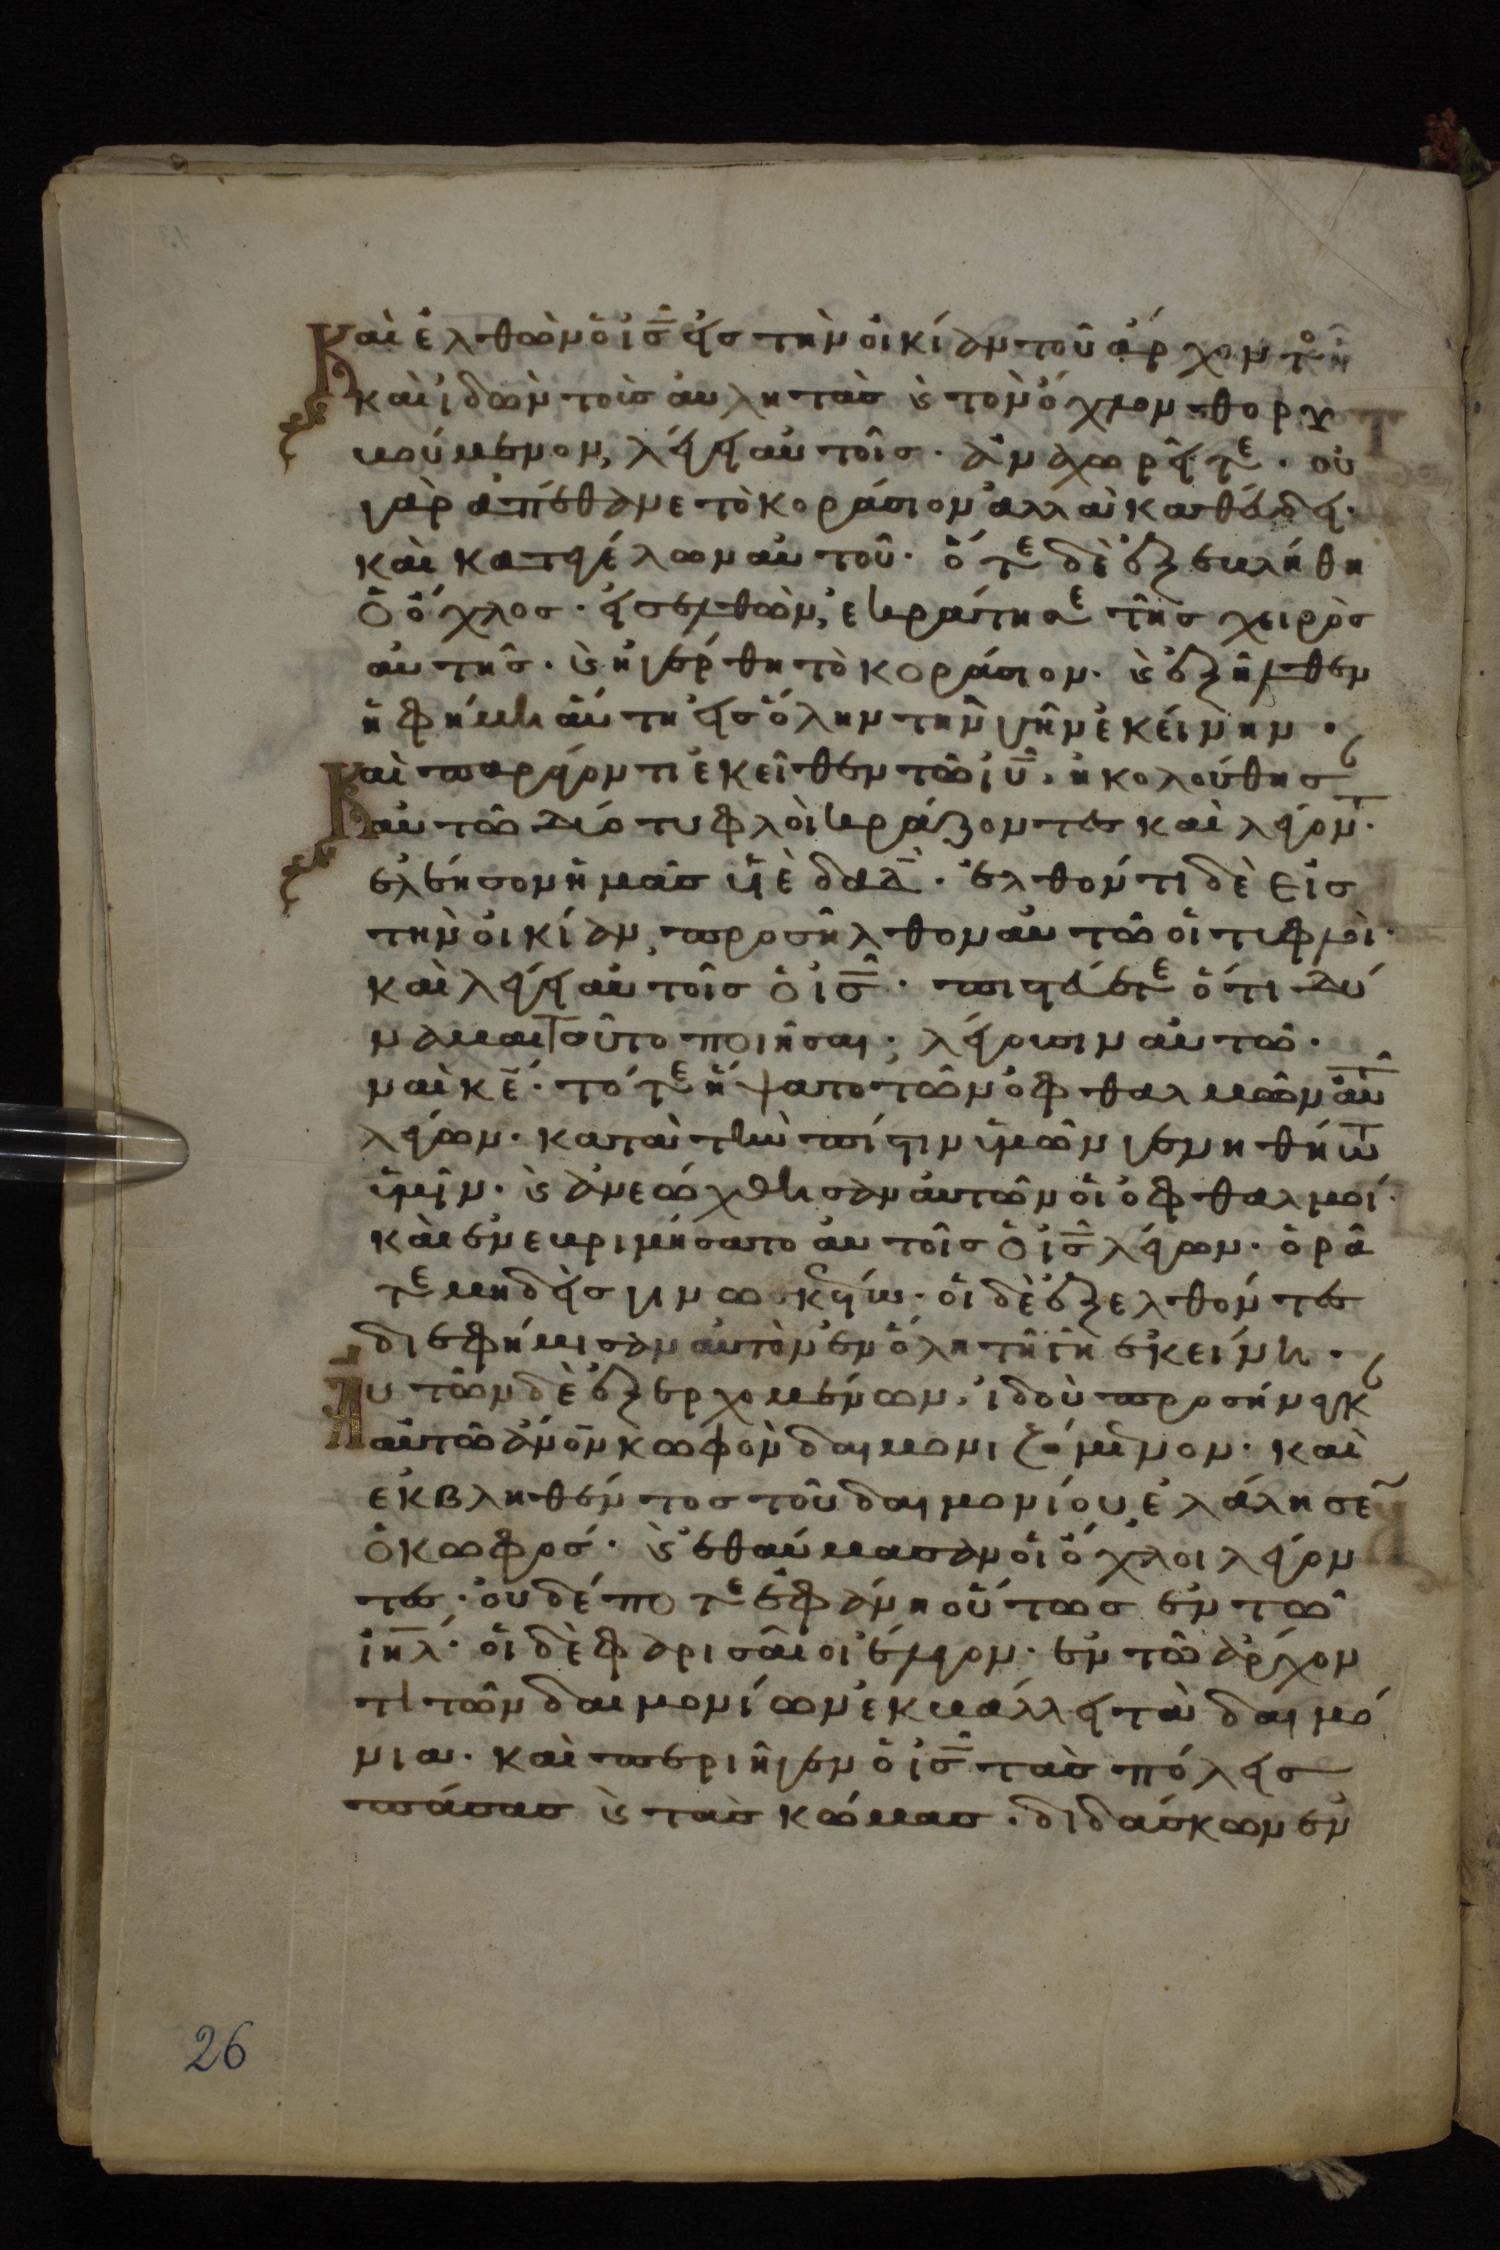 Καὶ ἐλθὼν ὁ ις εἰς τὴν οἰκίαν τοῦ ἄρχοντο
καὶ ἰδὼν τοὺς αὐλητὰς κ τὸν ὄχλον θορυ
βούμενον, λέγει αὐτοῖς· ἀναχωρεῖτε· οὐ
γὰρ ἀπέθανε τὸ κοράσιον ἀλλὰ καθεύδει·
καὶ κατεγέλων αὐτοῦ· ὅτε δὲ ἐξεβλήθη
ὁ ὄχλος· εἰσελθὼν, ἐκράτησε τῆς χειρὸς
αὐτῆς· κ ἠγέρθη τὸ κοράσιον· κ ἐξῆλθεν
ἡ φήμη αὕτη εἰς ὅλην τὴν γῆν ἐκείνην·
Καὶ παράγοντι ἐκεῖθεν τῶ ιυ, ἠκολούθησ
αὐτῶ δύο τυφλοὶ κράζοντες καὶ λέγοντ·
ἐλέησον ἡμᾶς υἱὲ δαδ· ἐλθόντι δὲ εἰς
τὴν οἰκίαν, προσῆλθον αὐτῶ οἱ τυφλοὶ·
καὶ λέγει αὐτοῖς ὁ ις· πιστεύετε ὅτι δύ
ναμαι τοῦτο ποιῆσαι; λέγουσιν αὐτῶ·
ναὶ κε· τότε ἥψατο τῶν ὀφθαλμῶν αὐτ
λέγων· κατὰ τὴν πίστιν ὑμῶν γενηθήτω
ὑμῖν· κ ἀνεώχθησαν αὐτῶν οἱ ὀφθαλμοί·
καὶ ἐνεβριμήσατο αὐτοῖς ὁ ις λέγων· ὁρᾶ
τε μηδεὶς γινωσκέτω· οἱ δὲ ἐξελθόντες
διεφήμισαν αὐτὸν ἐν ὅλη τῆ γῆ ἐκείνη·
Αὐτῶν δὲ ἐξερχομένων, ἰδοὺ προσήνεγκ
αὐτῶ ἄνον κωφὸν δαιμονιζόμενον· καὶ
ἐκβληθέντος τοῦ δαιμονίου, ἐλάλησεν
ὁ κωφός· κ ἐθαύμασαν οἱ ὄχλοι λέγον
τες· οὐδέποτε ἐφάνη οὕτως ἐν τῶ
ιηλ· οἱ δὲ φαρισαῖοι ἔλεγον· ἐν τῶ ἄρχον
τι τῶν δαιμονίων ἐκβάλλει τὰ δαιμό
νια· καὶ περιῆγεν ὁ ις τὰς πόλεις
πάσας κ τὰς κώμας· διδάσκων ἐν
26